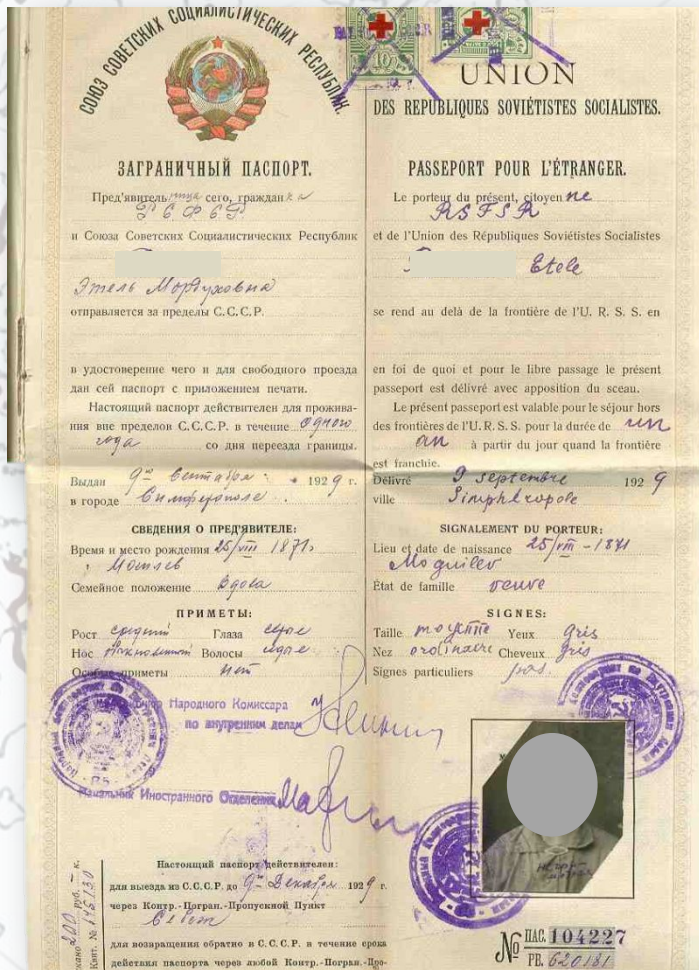 СОЮЗ СОВЕТСКИХ СОЦИАЛИСТИЧЕСКИХ РЕСПУБЛИК.
ЗАГРАНИЧНЫЙ ПАСПОРТ.
Пред'явительница сего, гражданка
РСФСР
и Союза Советских Социалистических Республик
Этель Мордуховна
отправляется за пределы С.С.С.Р.
в удостоверение чего и для свободного проезда
дан сей паспорт с приложением печати.
Настоящий паспорт действителен для прожива-
ния вне пределов С.С.С.Р. в течение одного
года со дня переезда границы.
Выдан 9го Сентября 1929 г.
в городе Симферополе
СВЕДЕНИЯ О ПРЕД'ЯВИТЕЛЕ:
Время и место рождения 25/VIII 1871
Могилев
Семейное положение Вдова
ПРИМЕТЫ:
Рост средний Глаза серые
Нос Волосы седые
Особые приметы нет
Народного Комиссара
по внутренним делам
Начальник Иностранного Отделения
Настоящий паспорт действителен:
для выезда из С.С.С.Р. до 9го Декабря 1929 г.
через Контр.-Погран.-Пропускной Пункт
для возвращения обратно в С.С.С.Р. в течение срока
действия паспорта через любой Контр.-Погран.-Про-
200 руб. к.
Квит. № 145130
10
UNION
DES REPUBLIQUES SOVIÉTISTES SOCIALISTES.
PASSEPORT POUR L'ÉTRANGER.
Le porteur du présent, citoyenne
RSFSR
et de l'Union des Républiques Soviétistes Socialistes
Etele
se rend au delà de la frontière de l'U. R. S. S. en
en foi de quoi et pour le libre passage le présent
passeport est délivré avec apposition du sceau.
Le présent passeport est valable pour le séjour hors
des frontières de l'U. R. S. S. pour la durée de un
an à partir du jour quand la frontière
est franchie.
Délivré 9 septembre 1929
ville Simphéropole
SIGNALEMENT DU PORTEUR:
Lieu et date de naissance 25/VIII-1871
Moguilev
État de famille veuve
SIGNES:
Taille moyenne Yeux gris
Nez ordinaire Cheveux gris
Signes particuliers pas.
№ ПАС. 104227
РЕ. 620181